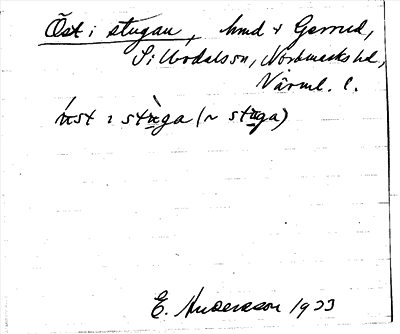 Öst i stugan, hmd t Gerrud,
Silbodals sn, Nordmarks hd,
Värml. l.
ùst ı stùga (~ stùga)
E. Andersson 1933